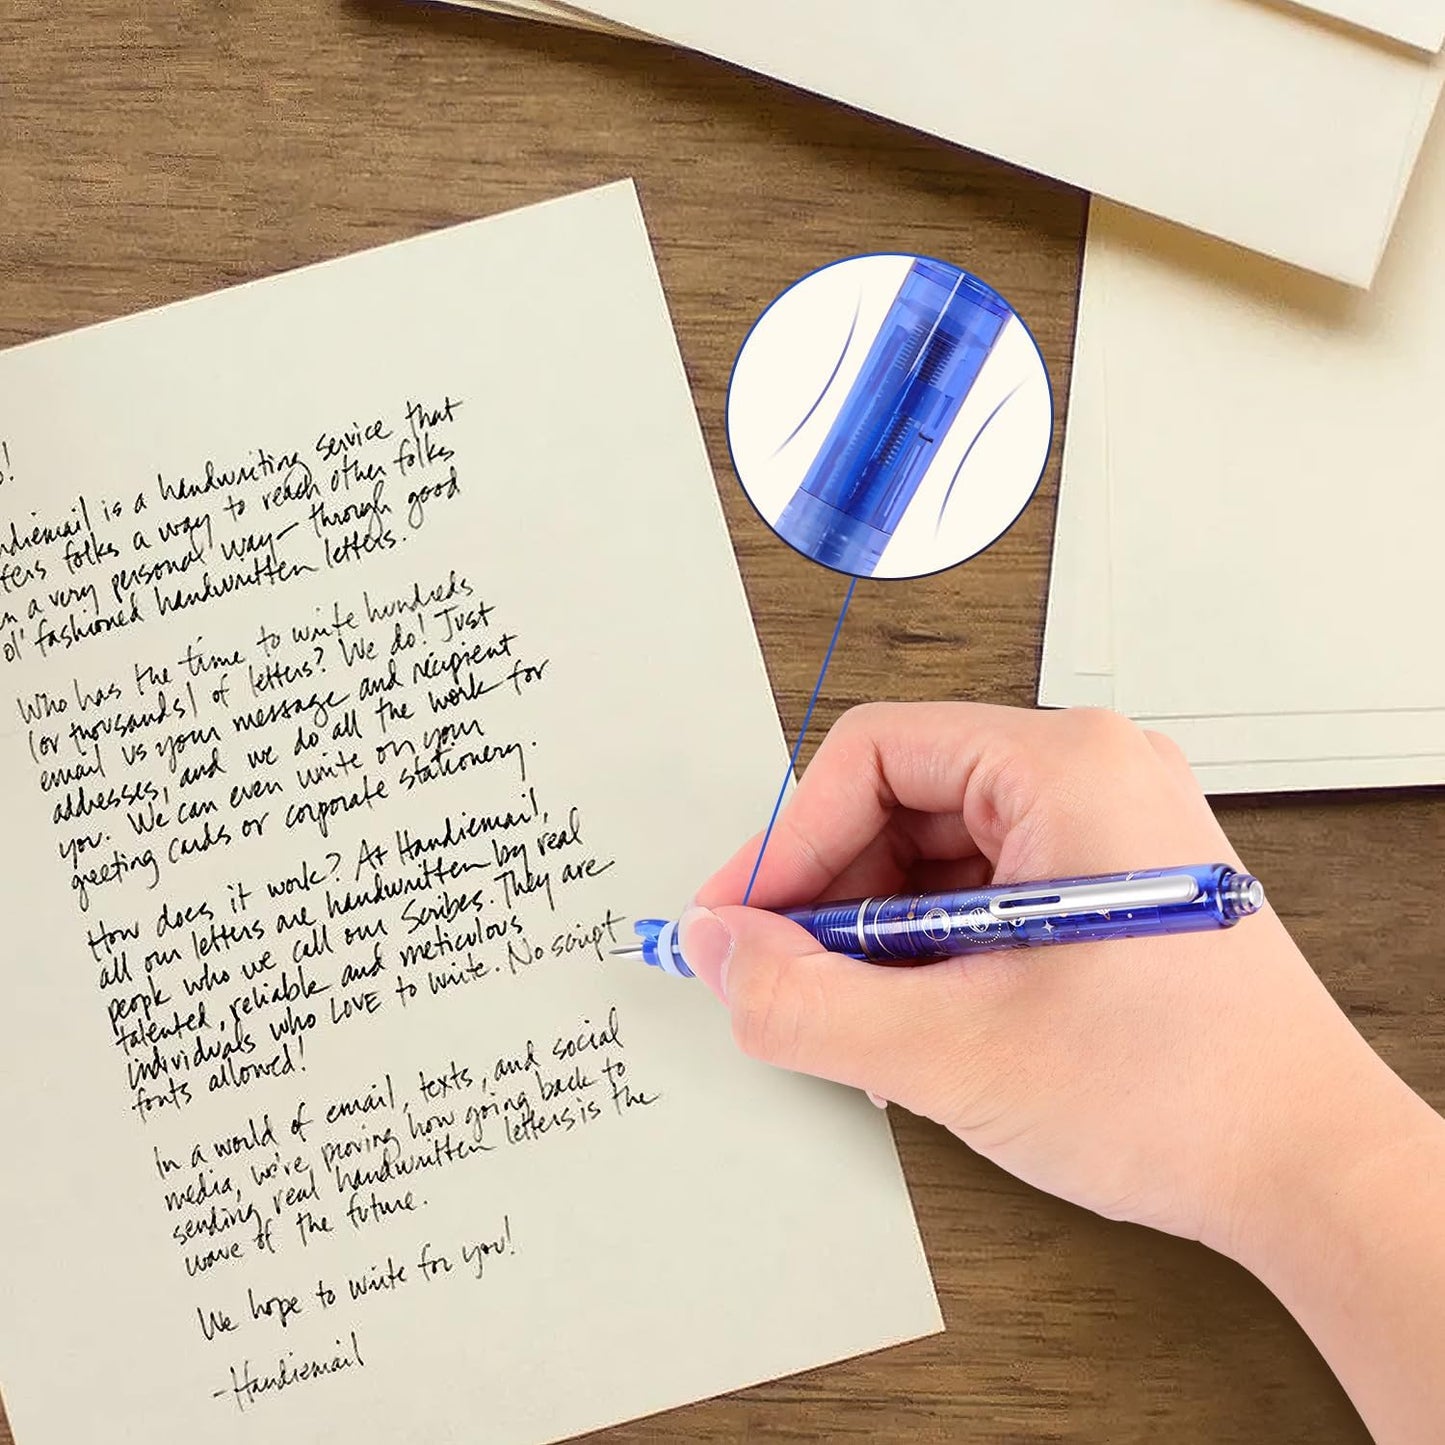 !
is a handwriting service that
folks a way to reach other folks
in a very personal way— through good
ol' fashioned handwritten letters.
Who has the time to write hundreds
(or thousands) of letters? We do! Just
email us your message and recipient
addresses, and we do all the work for
you. We can even write on your
greeting cards or corporate stationery.
How does it work? At Handiemail,
all our letters are handwritten by real
people who we call our Scribes. They are
talented, reliable and meticulous
individuals who LOVE to write. No script
fonts allowed!
In a world of email, texts, and social
media, we're proving how going back to
sending real handwritten letters is the
wave of the future.
We hope to write for you!
-Handiemail